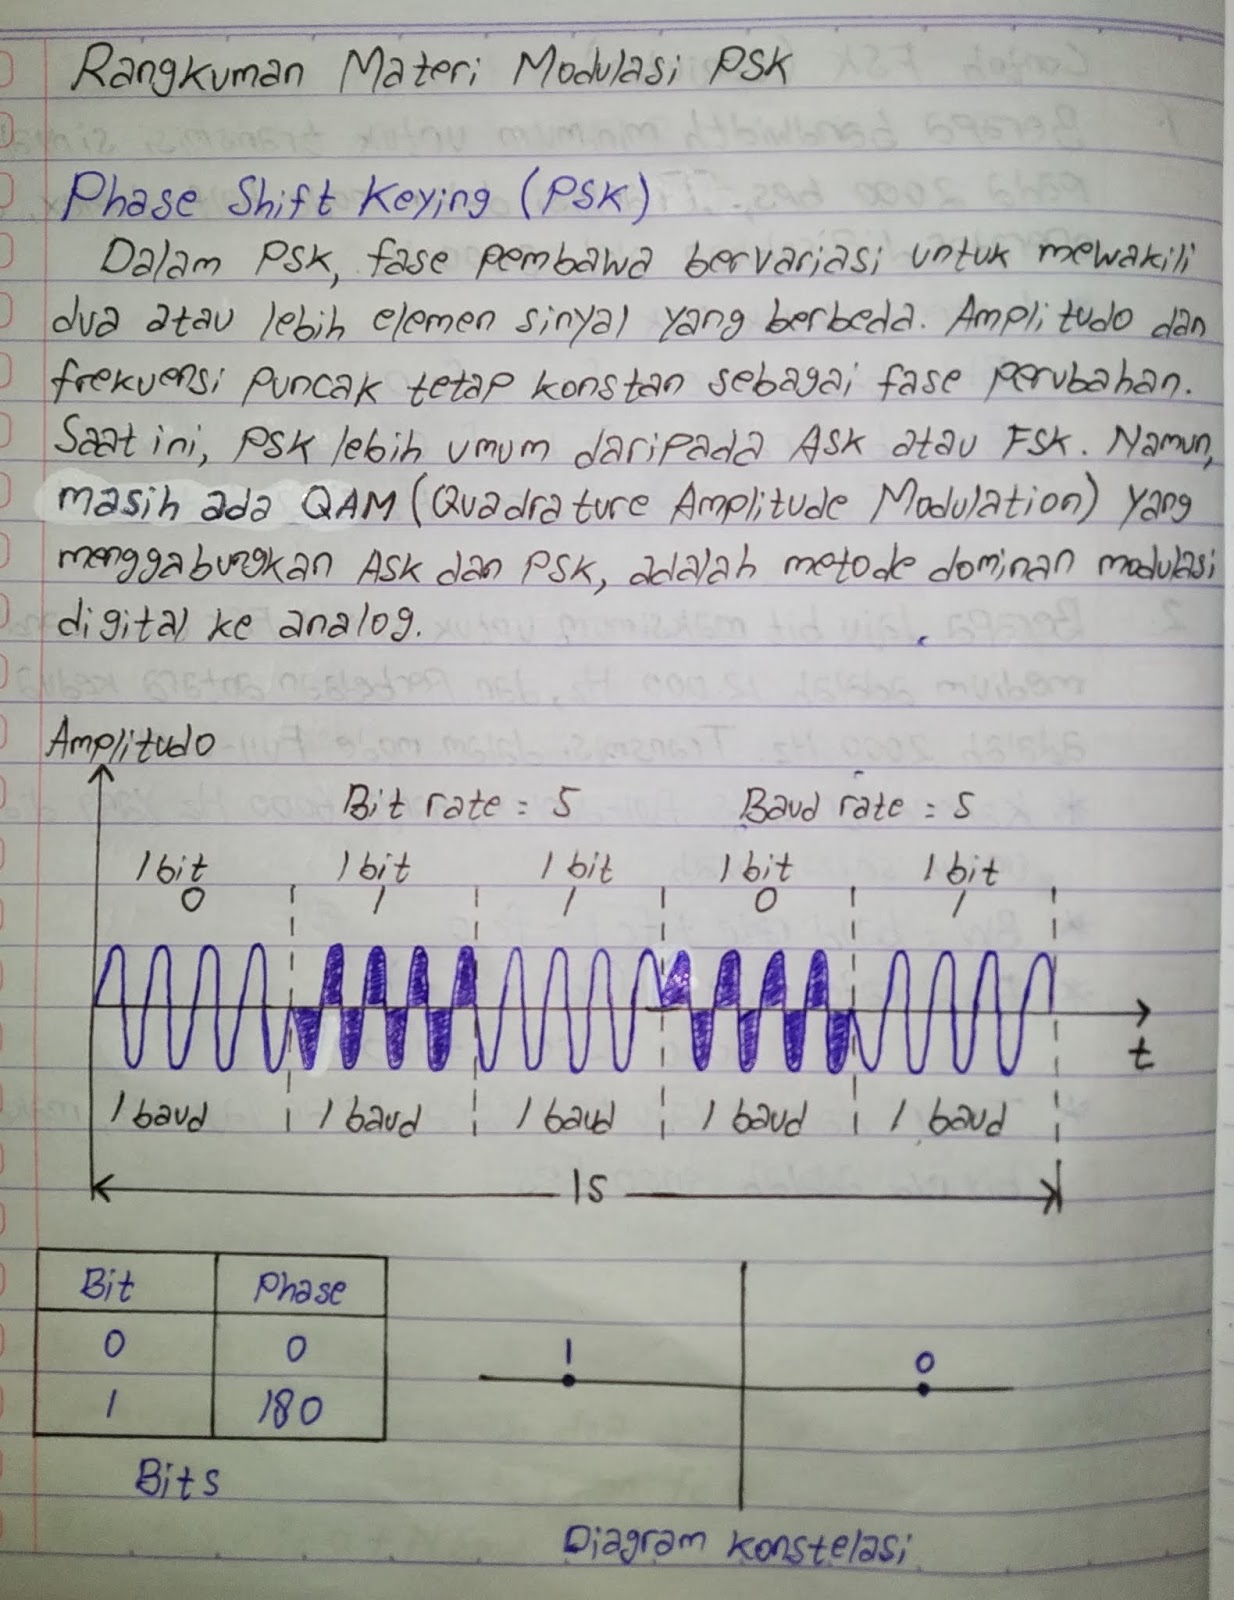 Rangkuman Materi Modulasi PSK
Phase Shift Keying (PSK)
Dalam PSK, fase pembawa bervariasi untuk mewakili
dua atau lebih elemen sinyal yang berbeda. Amplitudo dan
frekuensi puncak tetap konstan sebagai fase perubahan.
Saat ini, PSK lebih umum daripada ASK atau FSK. Namun,
masih ada QAM (Quadrature Amplitude Modulation) yang
menggabungkan ASK dan PSK, adalah metode dominan modulasi
digital ke analog.
Amplitudo
Bit rate = 5 Baud rate = 5
1 bit 1 bit 1 bit 1 bit 1 bit
0 1 1 0 1
t
1 baud 1 baud 1 baud 1 baud 1 baud
1s
Bit Phase
0 0
1 180
Bits
1 0
Diagram konstelasi